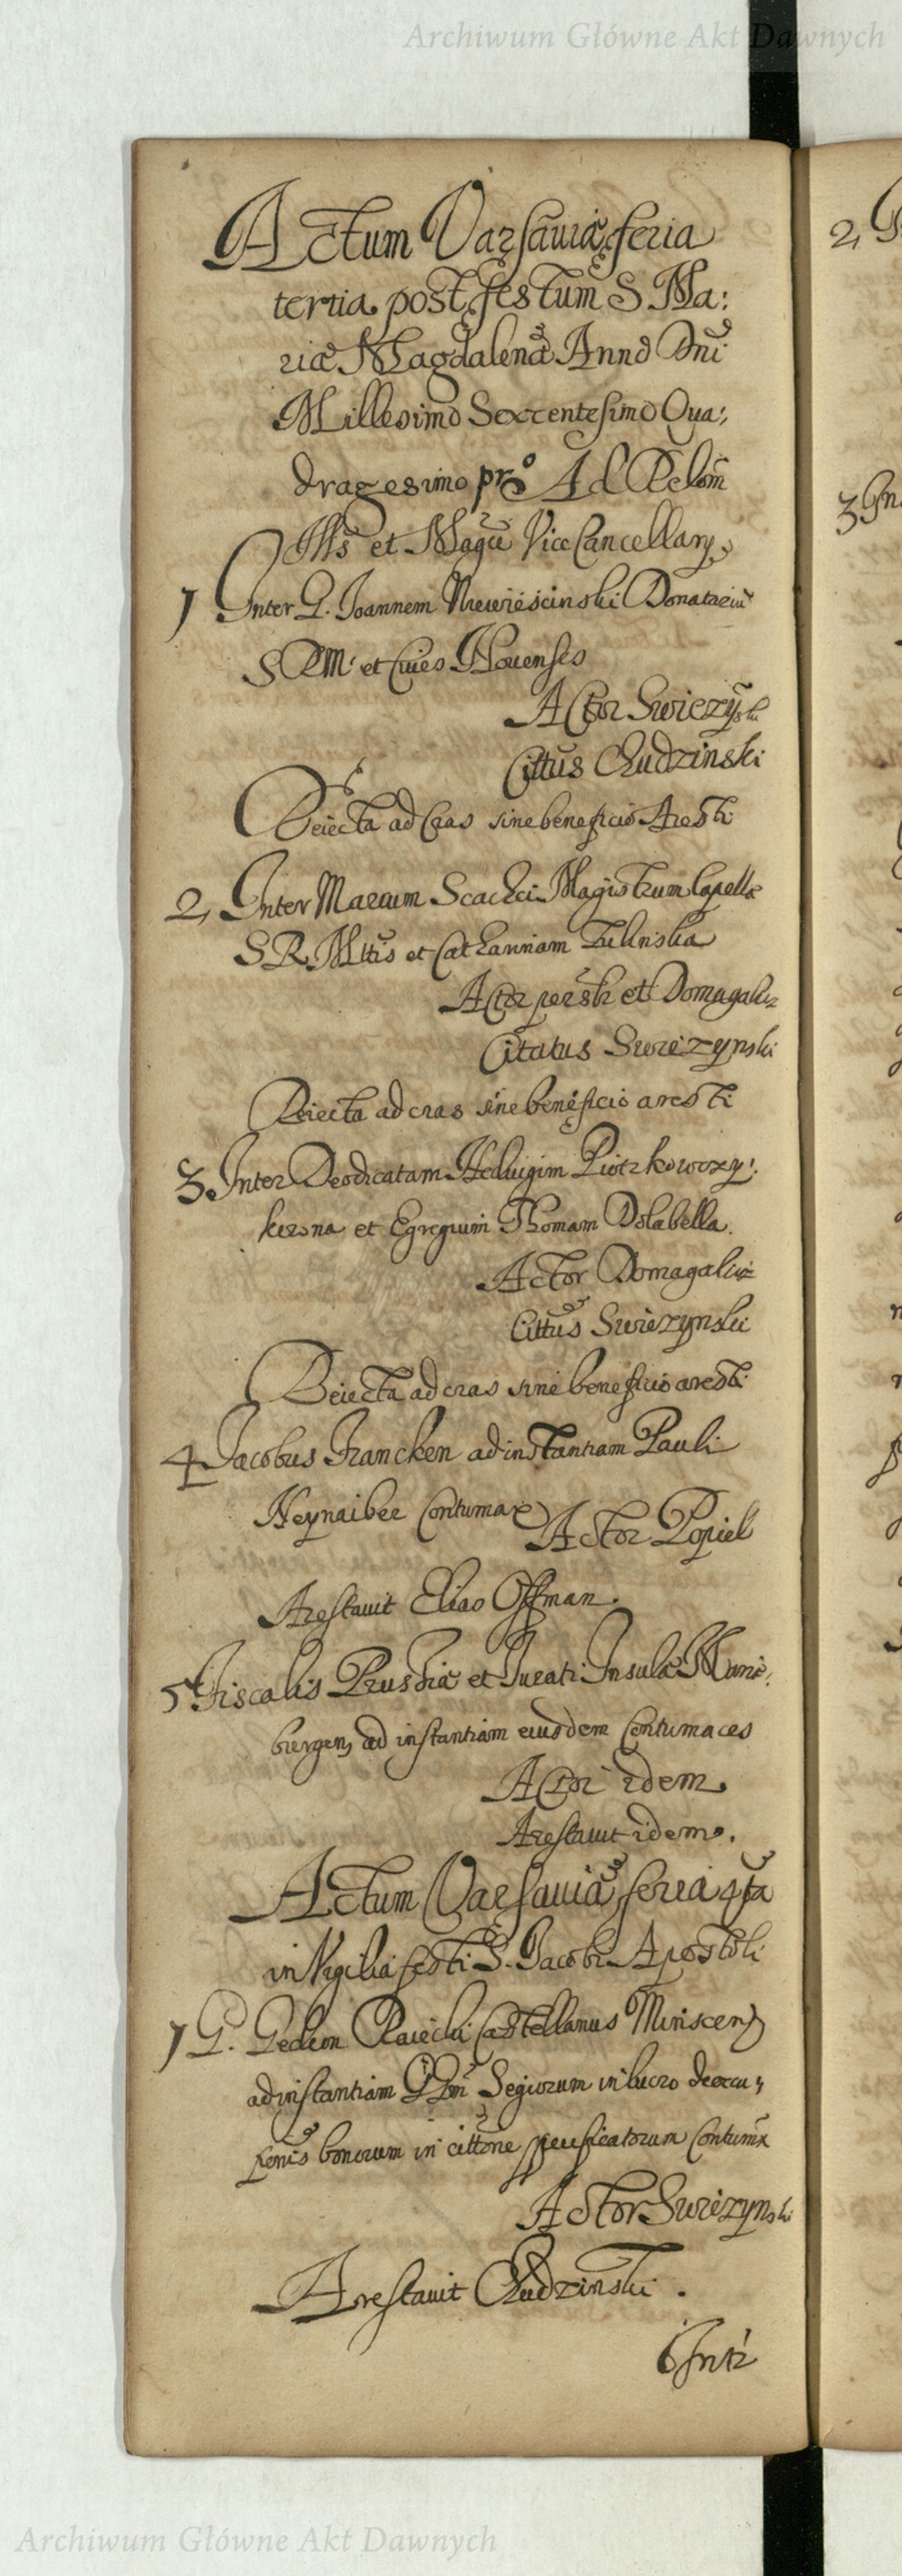 Archiwum Główne Akt Dawnych
Actum Varsaviæ feria
tertia post festum S. Ma:
riæ Magdalenæ Anno Dni
Millesimo Sexcentesimo Qua:
dragesimo pro Ad Relom
Illis et Magci ViceCancellary
1 Inter G. Joannem Niewiescinski Donatariũ
S R M: et Cives
Actor Swiezynski
Cittus Chudzinski
Reiecta ad Cras sine beneficio Aresti
2, Inter Marcum Scacchi Magistrum Capellæ
S R Mttis et Catharinam Zelinska
Actor perslr et Domagalicz
Citatus Swiezynski
Reiecta ad cras sine beneficio aresti
3. Inter Deodicatam Hedvigim Piotrkowczy:
kowna et Egregium Thomam Dolabella.
Actor Domagalicz
Cittus Swiezynski
Reiecta ad cras sine beneficio aresti
4 Jacobus Francken ad instantiam Pauli
Heynaiber Contumax Actor Popiel
Arestavit Elias Offman.
5 Fiscalis Prussiæ et Jurati Insulæ Marie:
burgen ad instantiam eiusdem Contumaces
Actor idem.
Arestavit idem.
Actum Varsaviæ feria 4ta
in Vigilia festi S. Jacobi Apostoli
1 G. Gedeon Raiecki Castellanus Minscen
ad instantiam in lucro deoccu,
bonorum in cittone specificatorum Contumax
Actor Swiezynski
Arestavit Chudzinski.
6 Intr
2,
3 In
Archiwum Główne Akt Dawnych